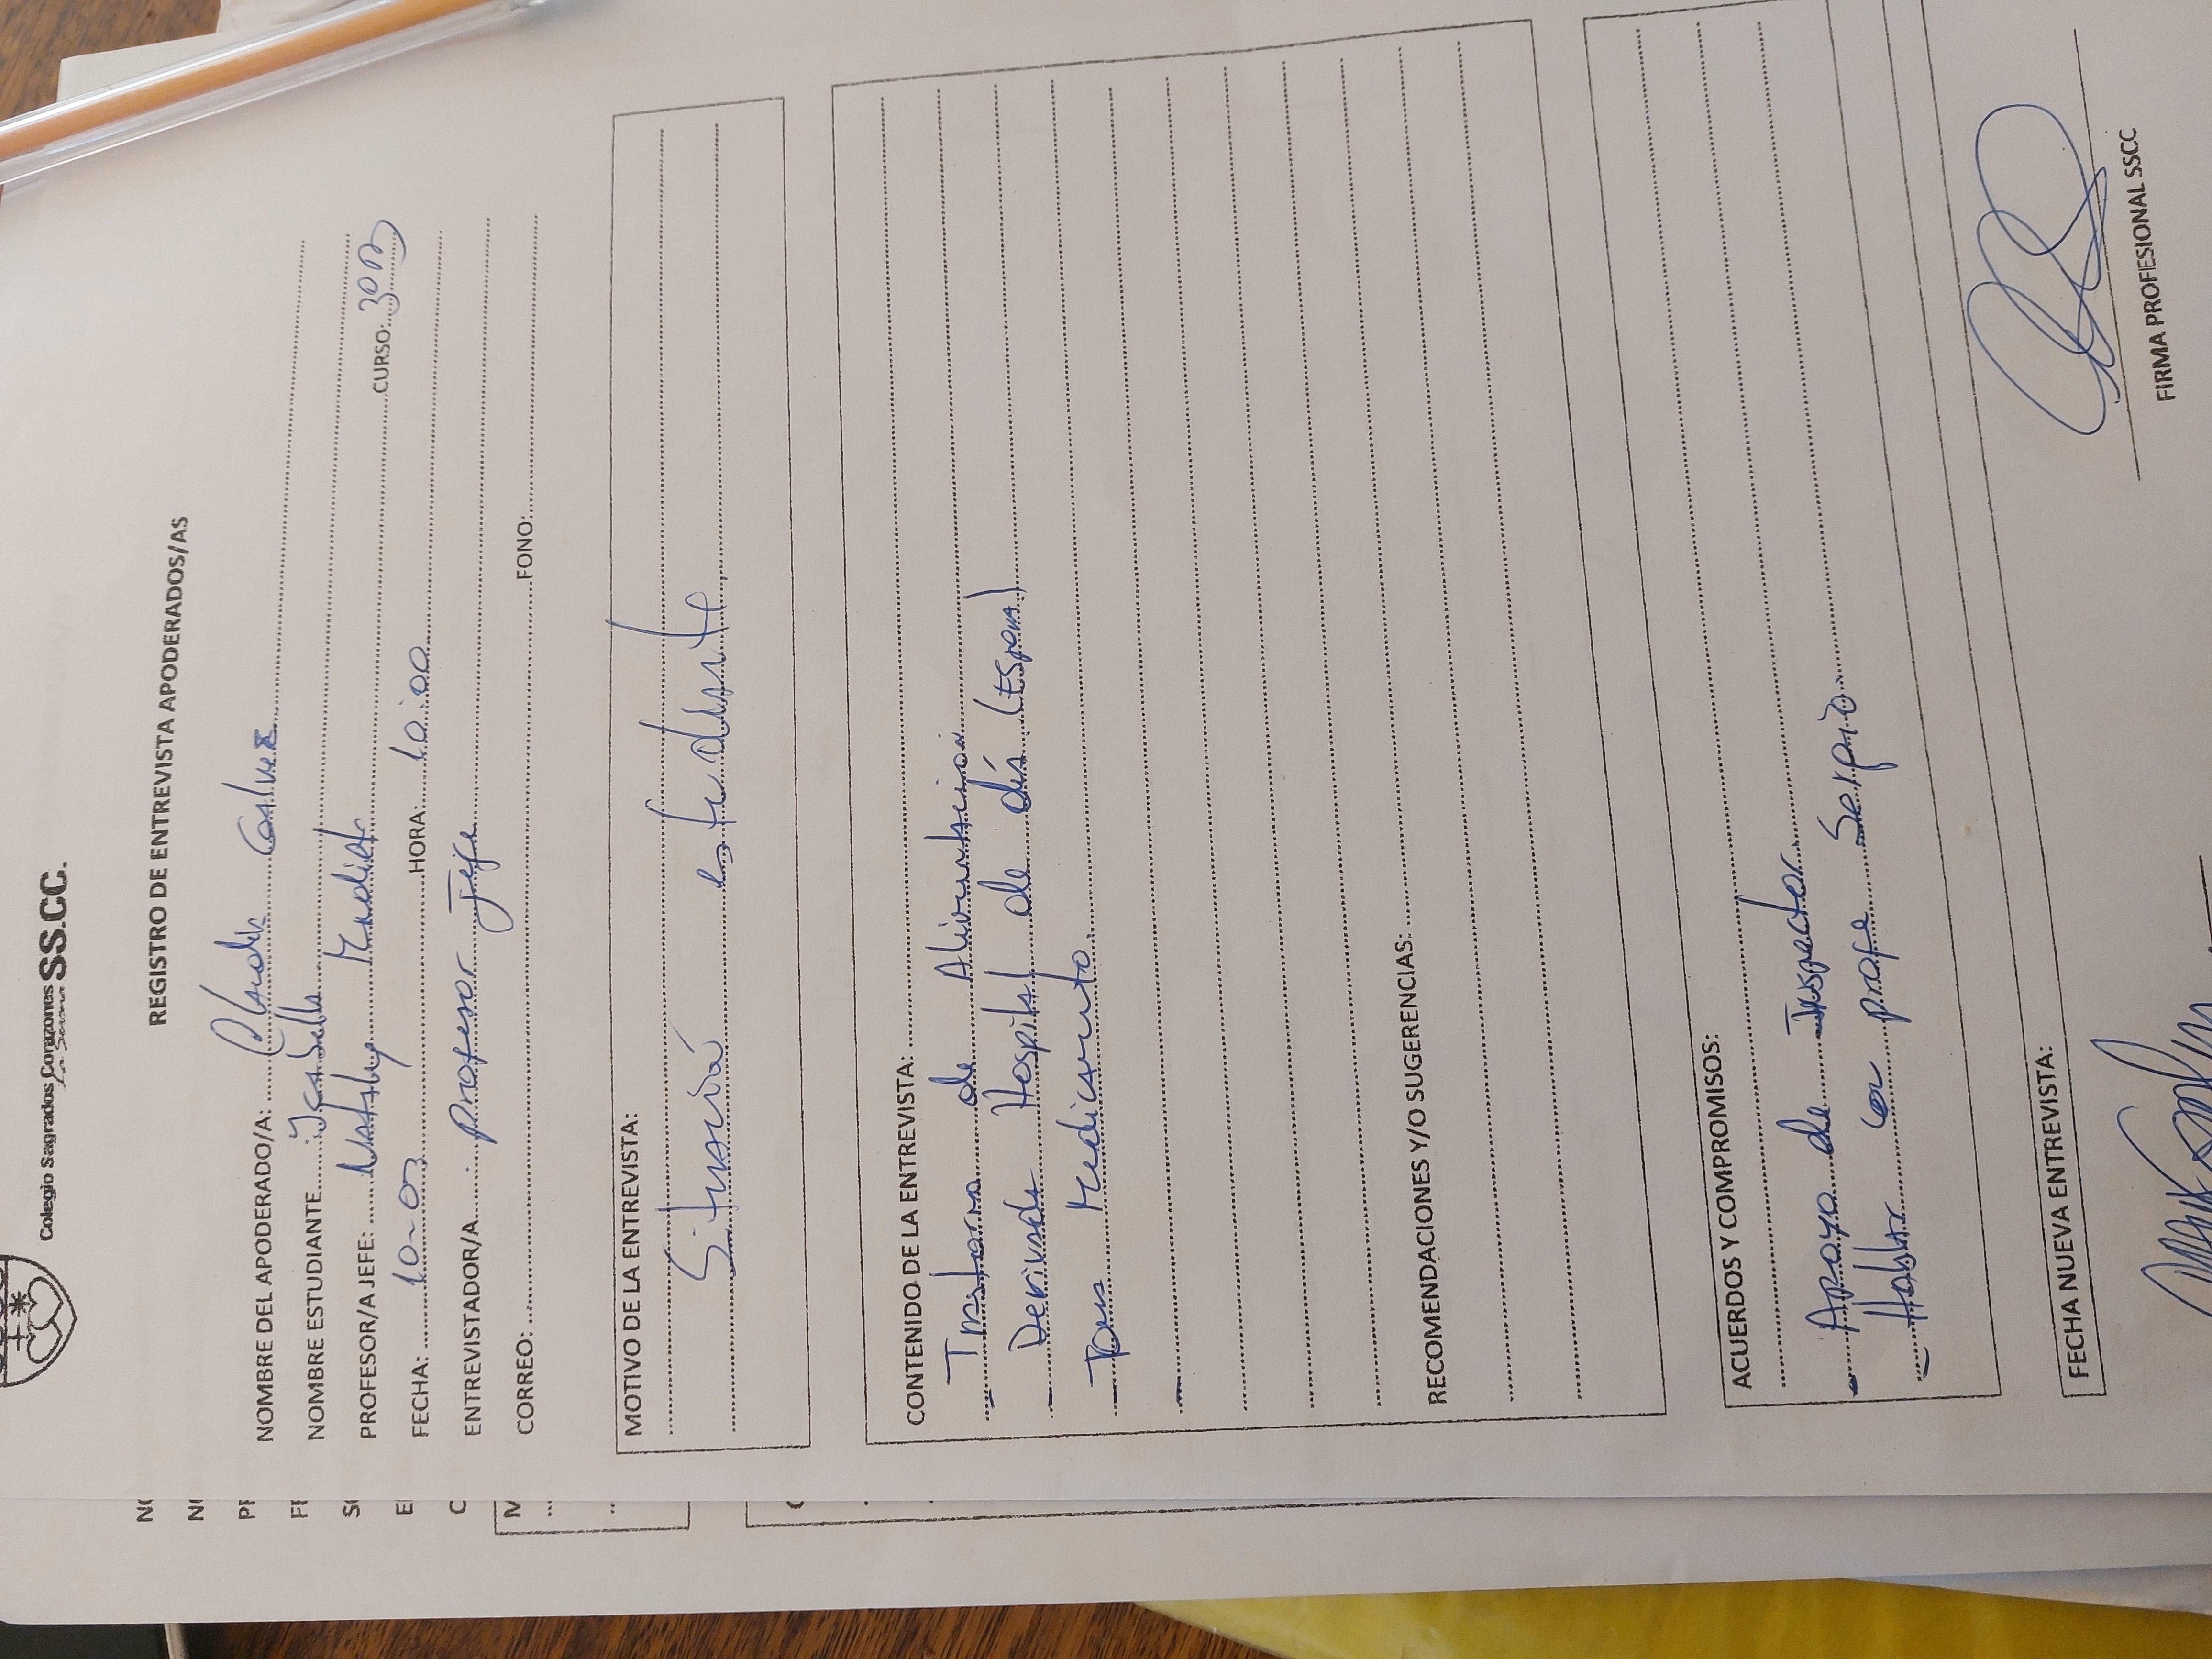 Colegio Sagrados Corazones SS.CC.
La Serena
REGISTRO DE ENTREVISTA APODERADOS/AS
NOMBRE DEL APODERADO/A: Claudia Galvez
NOMBRE ESTUDIANTE
PROFESOR/A JEFE: CURSO: 3º
FECHA: 10-03 HORA: 10:00
ENTREVISTADOR/A: profesor Jefe
CORREO: FONO:
MOTIVO DE LA ENTREVISTA:
Situación estudiante
CONTENIDO DE LA ENTREVISTA:
- Trastorno de Alimentación
- Derivada Hospital de día (espera)
- Toma Medicamento.
RECOMENDACIONES Y/O SUGERENCIAS:
ACUERDOS Y COMPROMISOS:
- Apoyo de Inspector
- Hablar con profe Sergio
FECHA NUEVA ENTREVISTA:
FIRMA PROFESIONAL SSCC